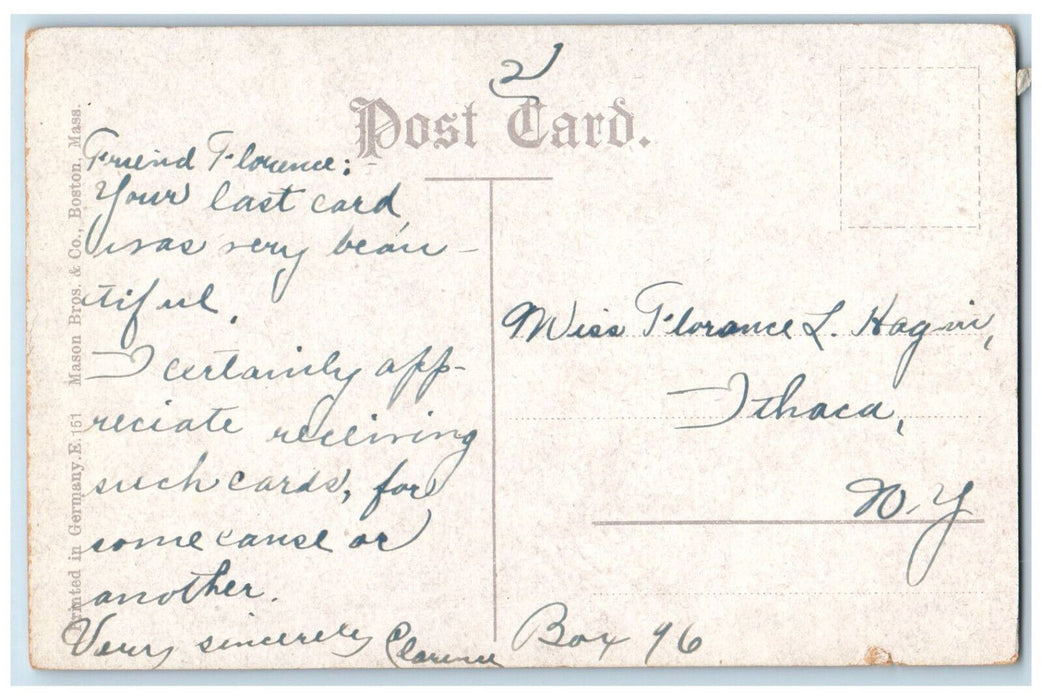 21
Post Card.
Friend Florence:
Your last card
was very beau-
tiful.
I certainly app-
reciate receiving
such cards, for
some cause or
another.
Very sincerely Clarence
Miss Florance L. Hagin,
Ithaca,
N.Y
Box 96
Printed in Germany. E. 151 Mason Bros. & Co., Boston, Mass.